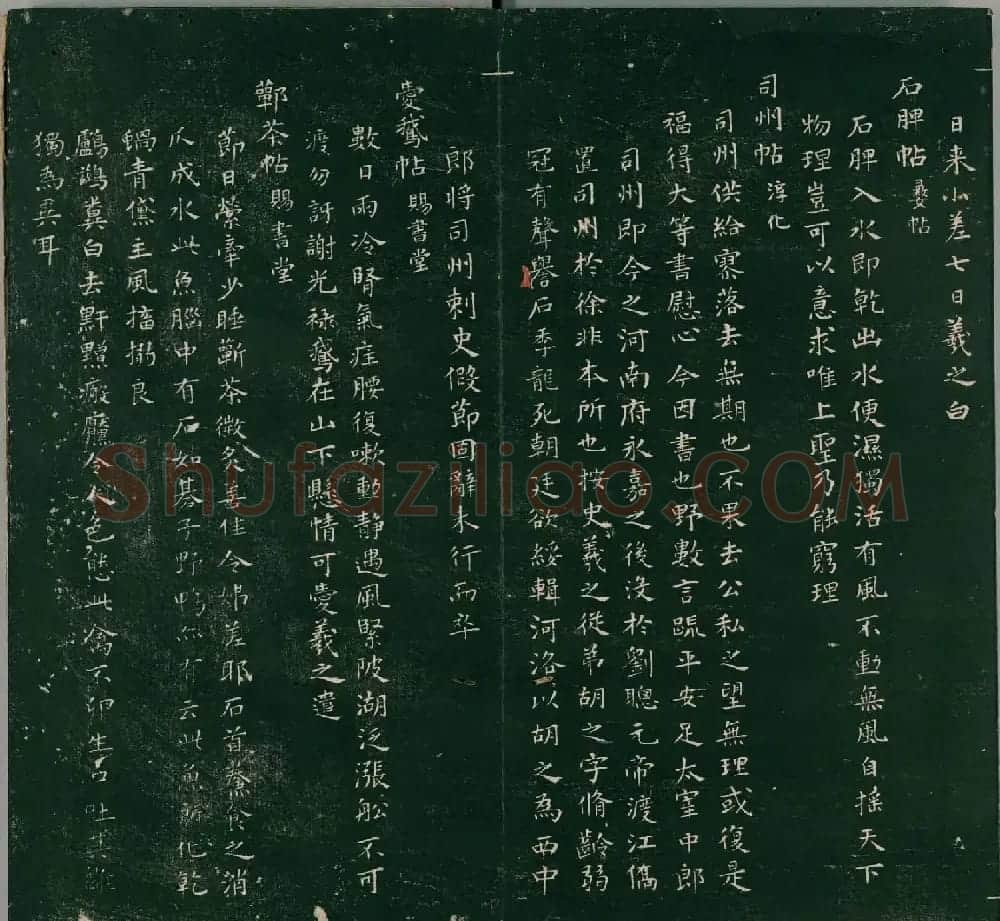 日来小差七日羲之白
石脾帖 彙帖
石脾入水即乾出水便濕獨活有風不動無風自搖天下
物理豈可以意求唯上聖乃能窮理
司州帖 淳化
司州供給寥落去無期也不果去公私之望無理或復是
福得大等書慰心今因書也野數言疏平安定太宰中郎
司州即今之河南府永嘉之後没於劉聰元帝渡江僑
置司州於徐非本所也按史羲之從弟胡之字脩齡弱
冠有聲譽石季龍死朝廷欲綏輯河洛以胡之為西中
郎將司州刺史假節固辭未行而卒
愛鵞帖 賜書堂
數日雨冷腎氣疰腰復嗽動静遇風緊陂湖泛漲舩不可
渡勿訝謝光禄鵞在山下懸情可愛羲之遣
鄿茶帖 賜書堂
節日縈牽少睡鄿茶微炙善佳令姊差耶石首鯗食之消
爪成水此魚腦中有石如棊子野鴨亦有云此魚所化乾
蝸青黛主風搐搦良
鸕鷀糞白去䵟黯瘢黶令人色態此禽不卵生口吐其雛
獨為異耳
Shufaziliao.COM